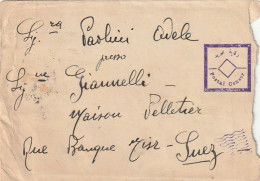 Sig.ra Paolini Adele
presso
Sig.ne Giannelli -
Maison Pelletier
Rue Banque Misr - Suez
Postal Censor